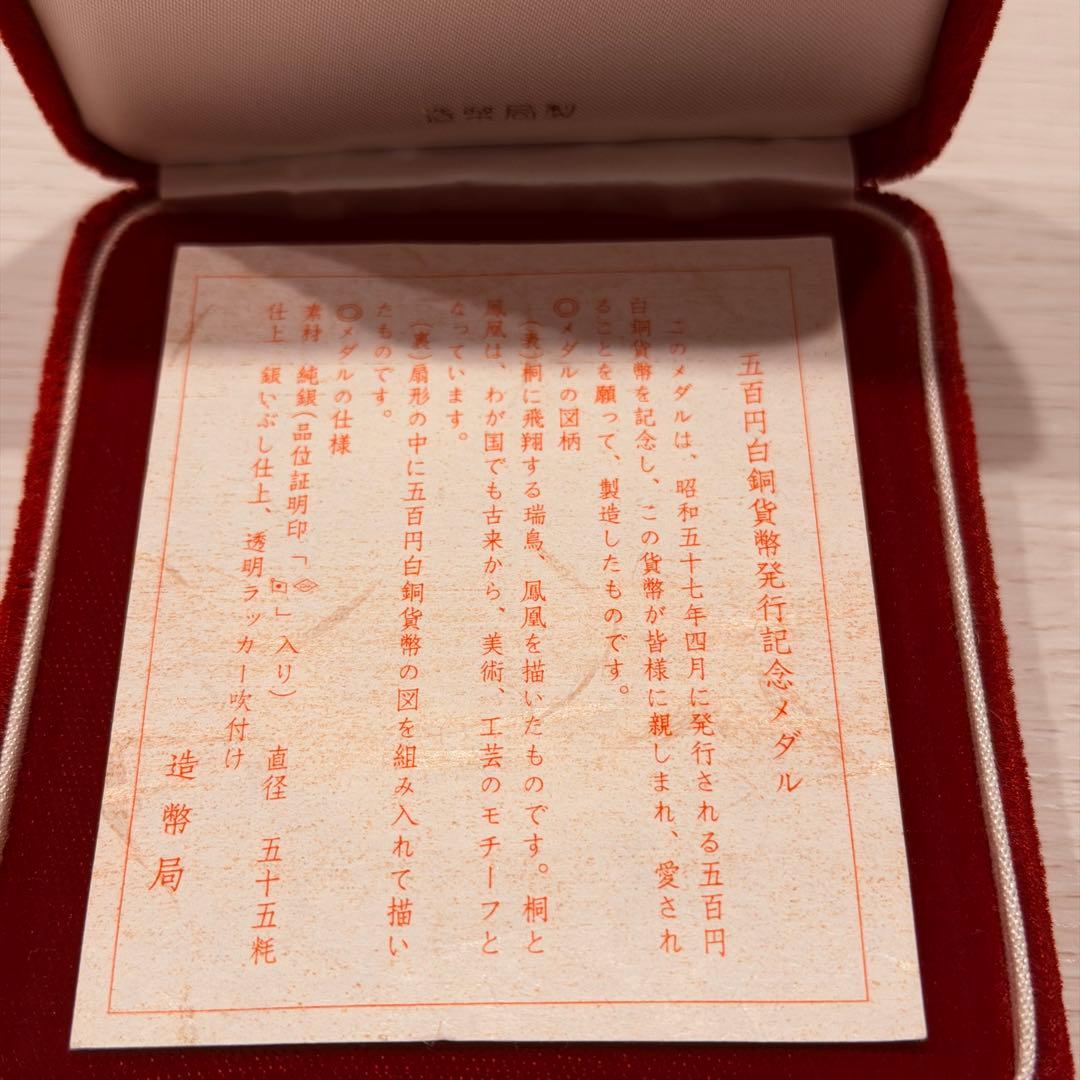 造幣局製
五百円白銅貨幣発行記念メダル
このメダルは、昭和五十七年四月に発行される五百円
白銅貨幣を記念し、この貨幣が皆様に親しまれ、愛され
ることを願って、製造したものです。
◎メダルの図柄
(表)桐に飛翔する瑞鳥、鳳凰を描いたものです。桐と
鳳凰は、わが国でも古来から、美術、工芸のモチーフと
なっています。
(裏)扇形の中に五百円白銅貨幣の図を組み入れて描い
たものです。
◎メダルの仕様
素材 純銀(品位証明印「」入り) 直径 五十五粍
仕上 銀いぶし仕上、透明ラッカー吹付け
造幣局